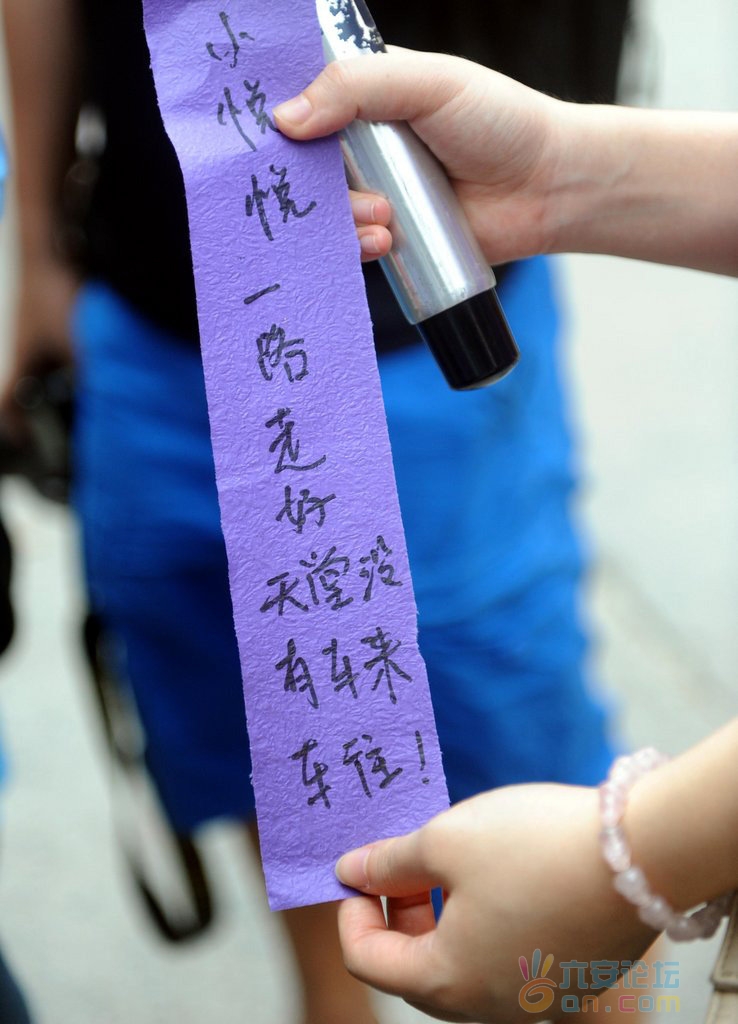 小
悦
悦
一
路
走
好
天堂没
有车来
车往！
六安论坛
6an.com